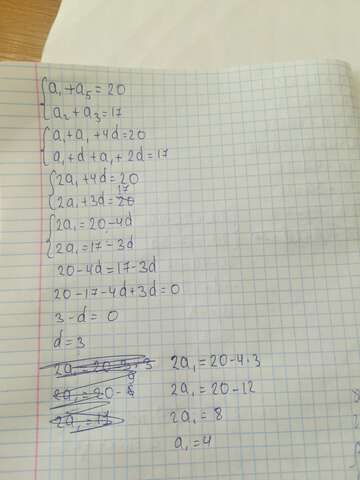 a₁+a₅=20
a₂+a₃=17
a₁+a₁+4d=20
a₁+d+a₁+2d=17
2a₁+4d=20
2a₁+3d=17
2a₁=20-4d
2a₁=17-3d
20-4d=17-3d
20-17-4d+3d=0
3-d=0
d=3
2a₁=20-4·3
2a₁=20-12
2a₁=8
a₁=4